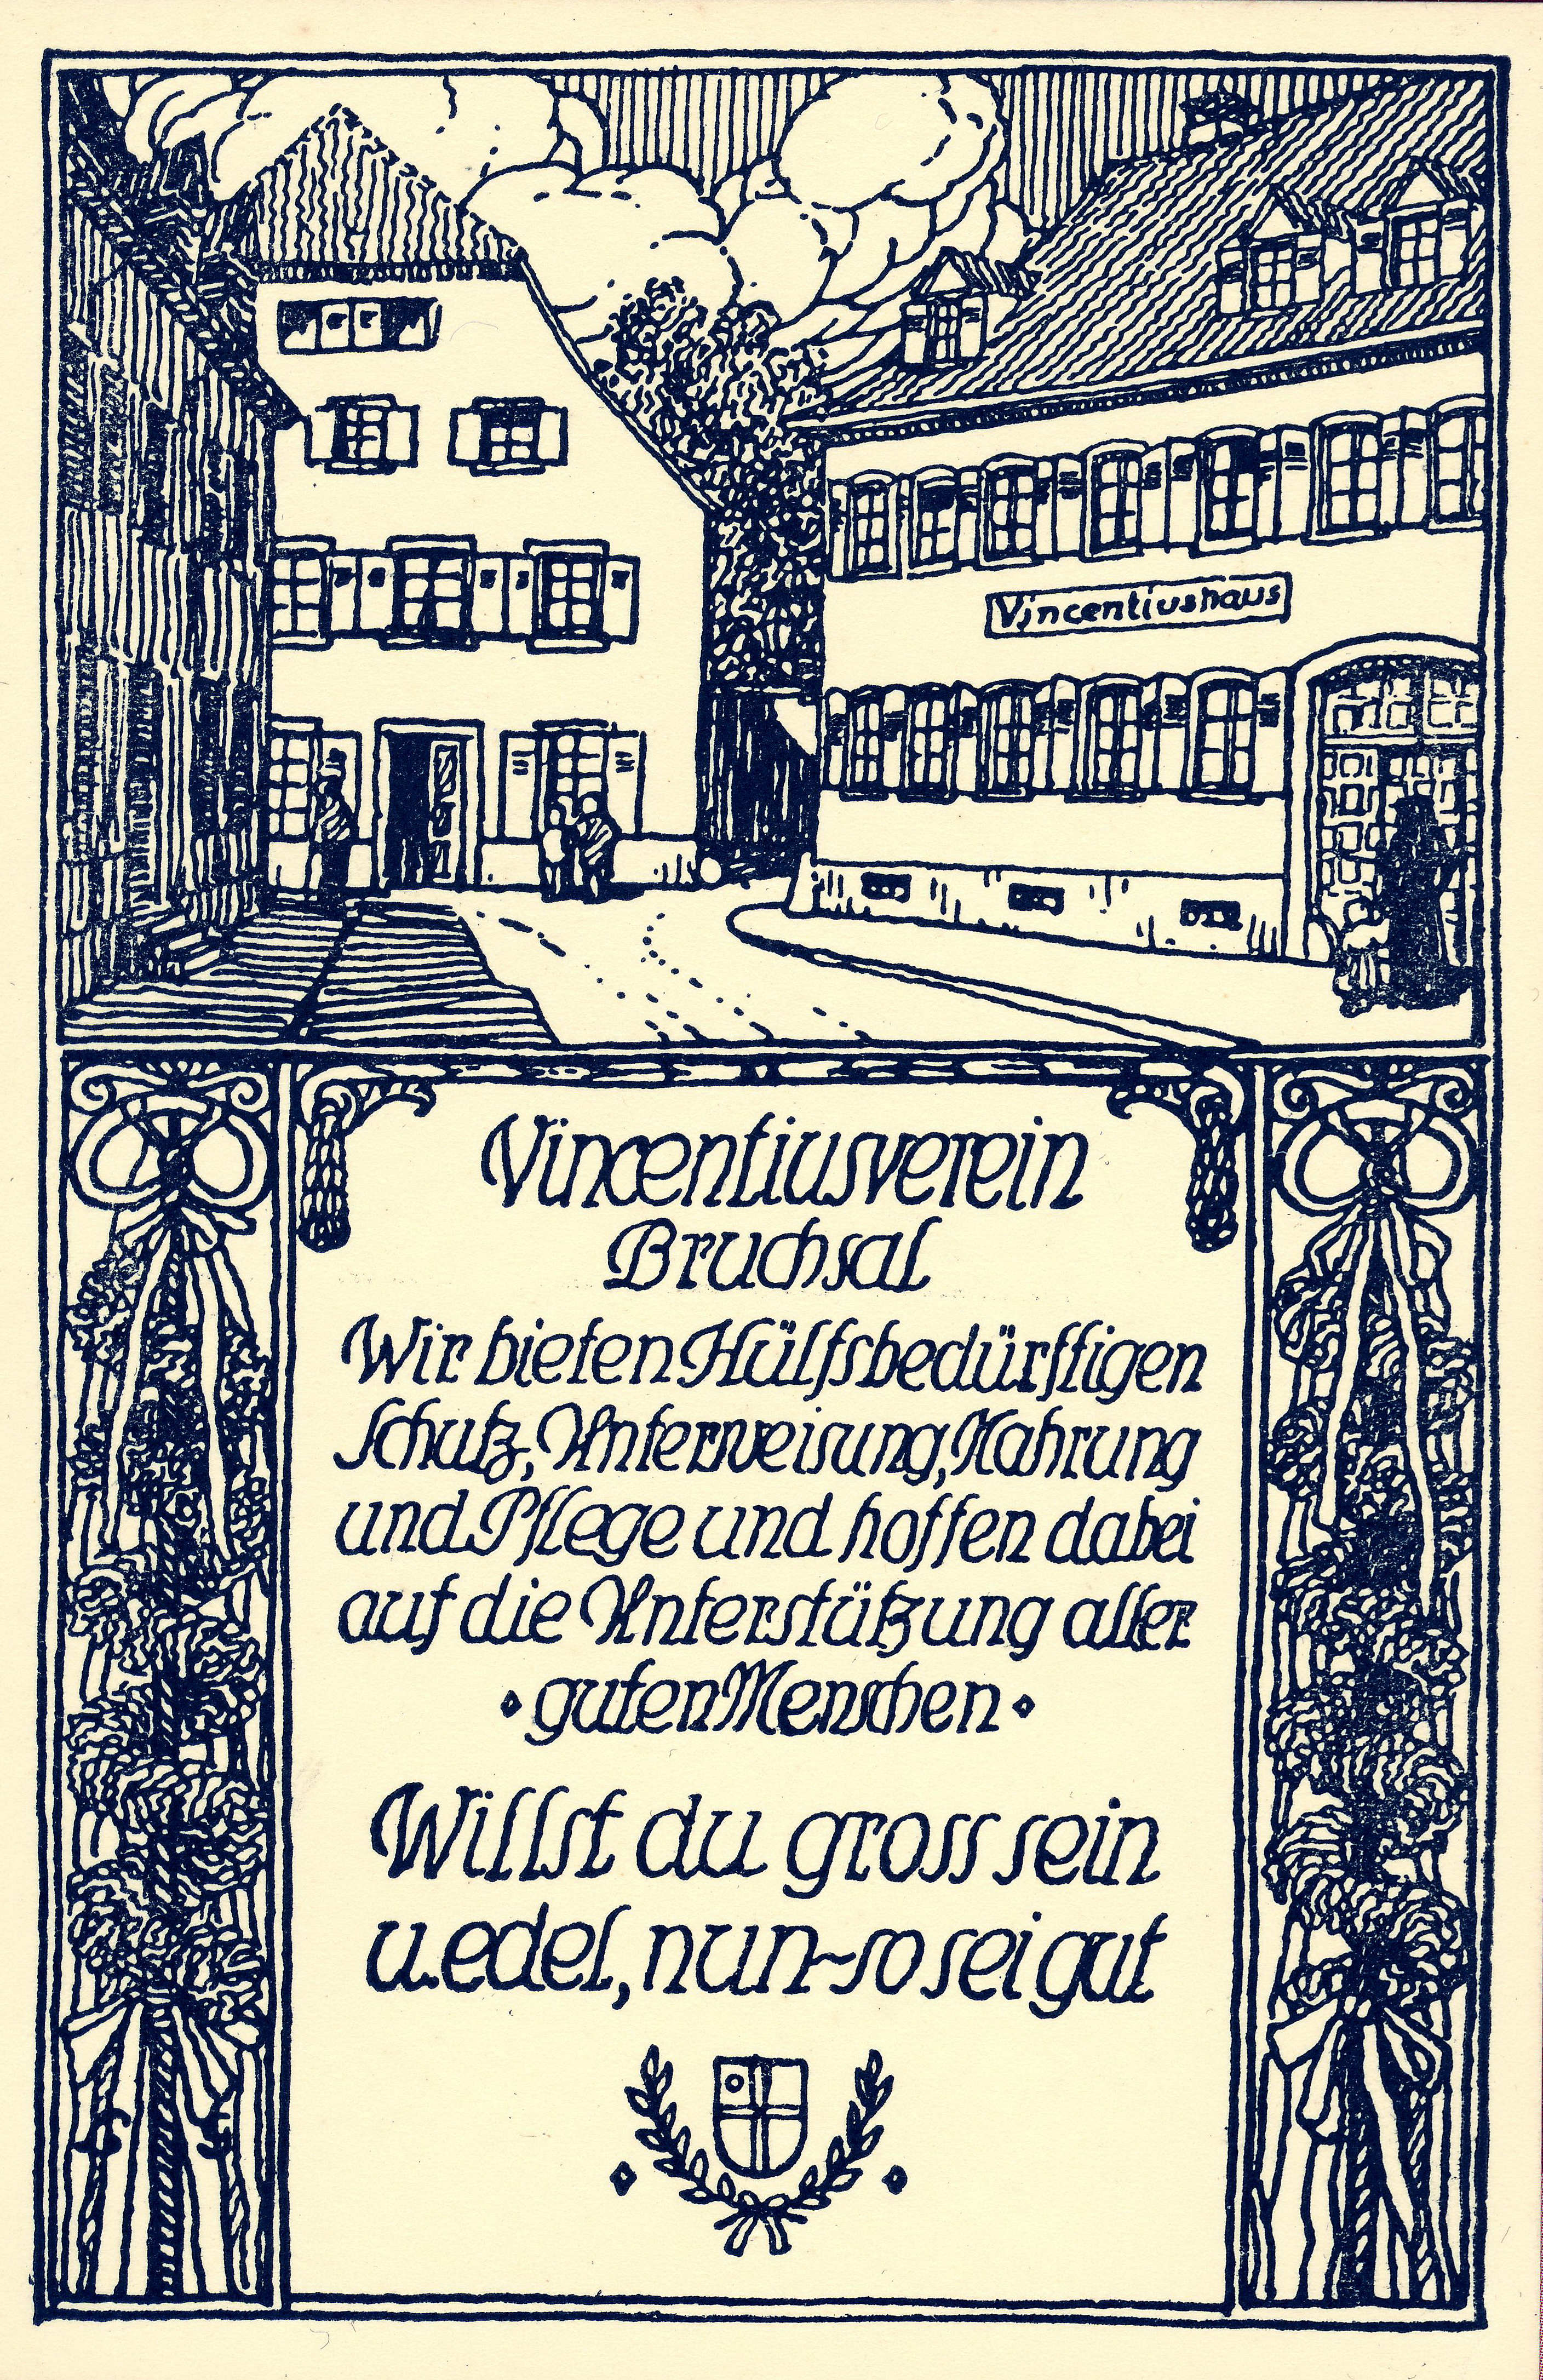 Vincentiushaus
Vincentiusverein
Bruchsal
Wir bieten Hülfsbedürftigen
Schutz, Unterweisung, Nahrung
und Pflege und hoffen dabei
auf die Unterstützung aller
guten Menschen
Willst du gross sein
u. edel, nun~so sei gut